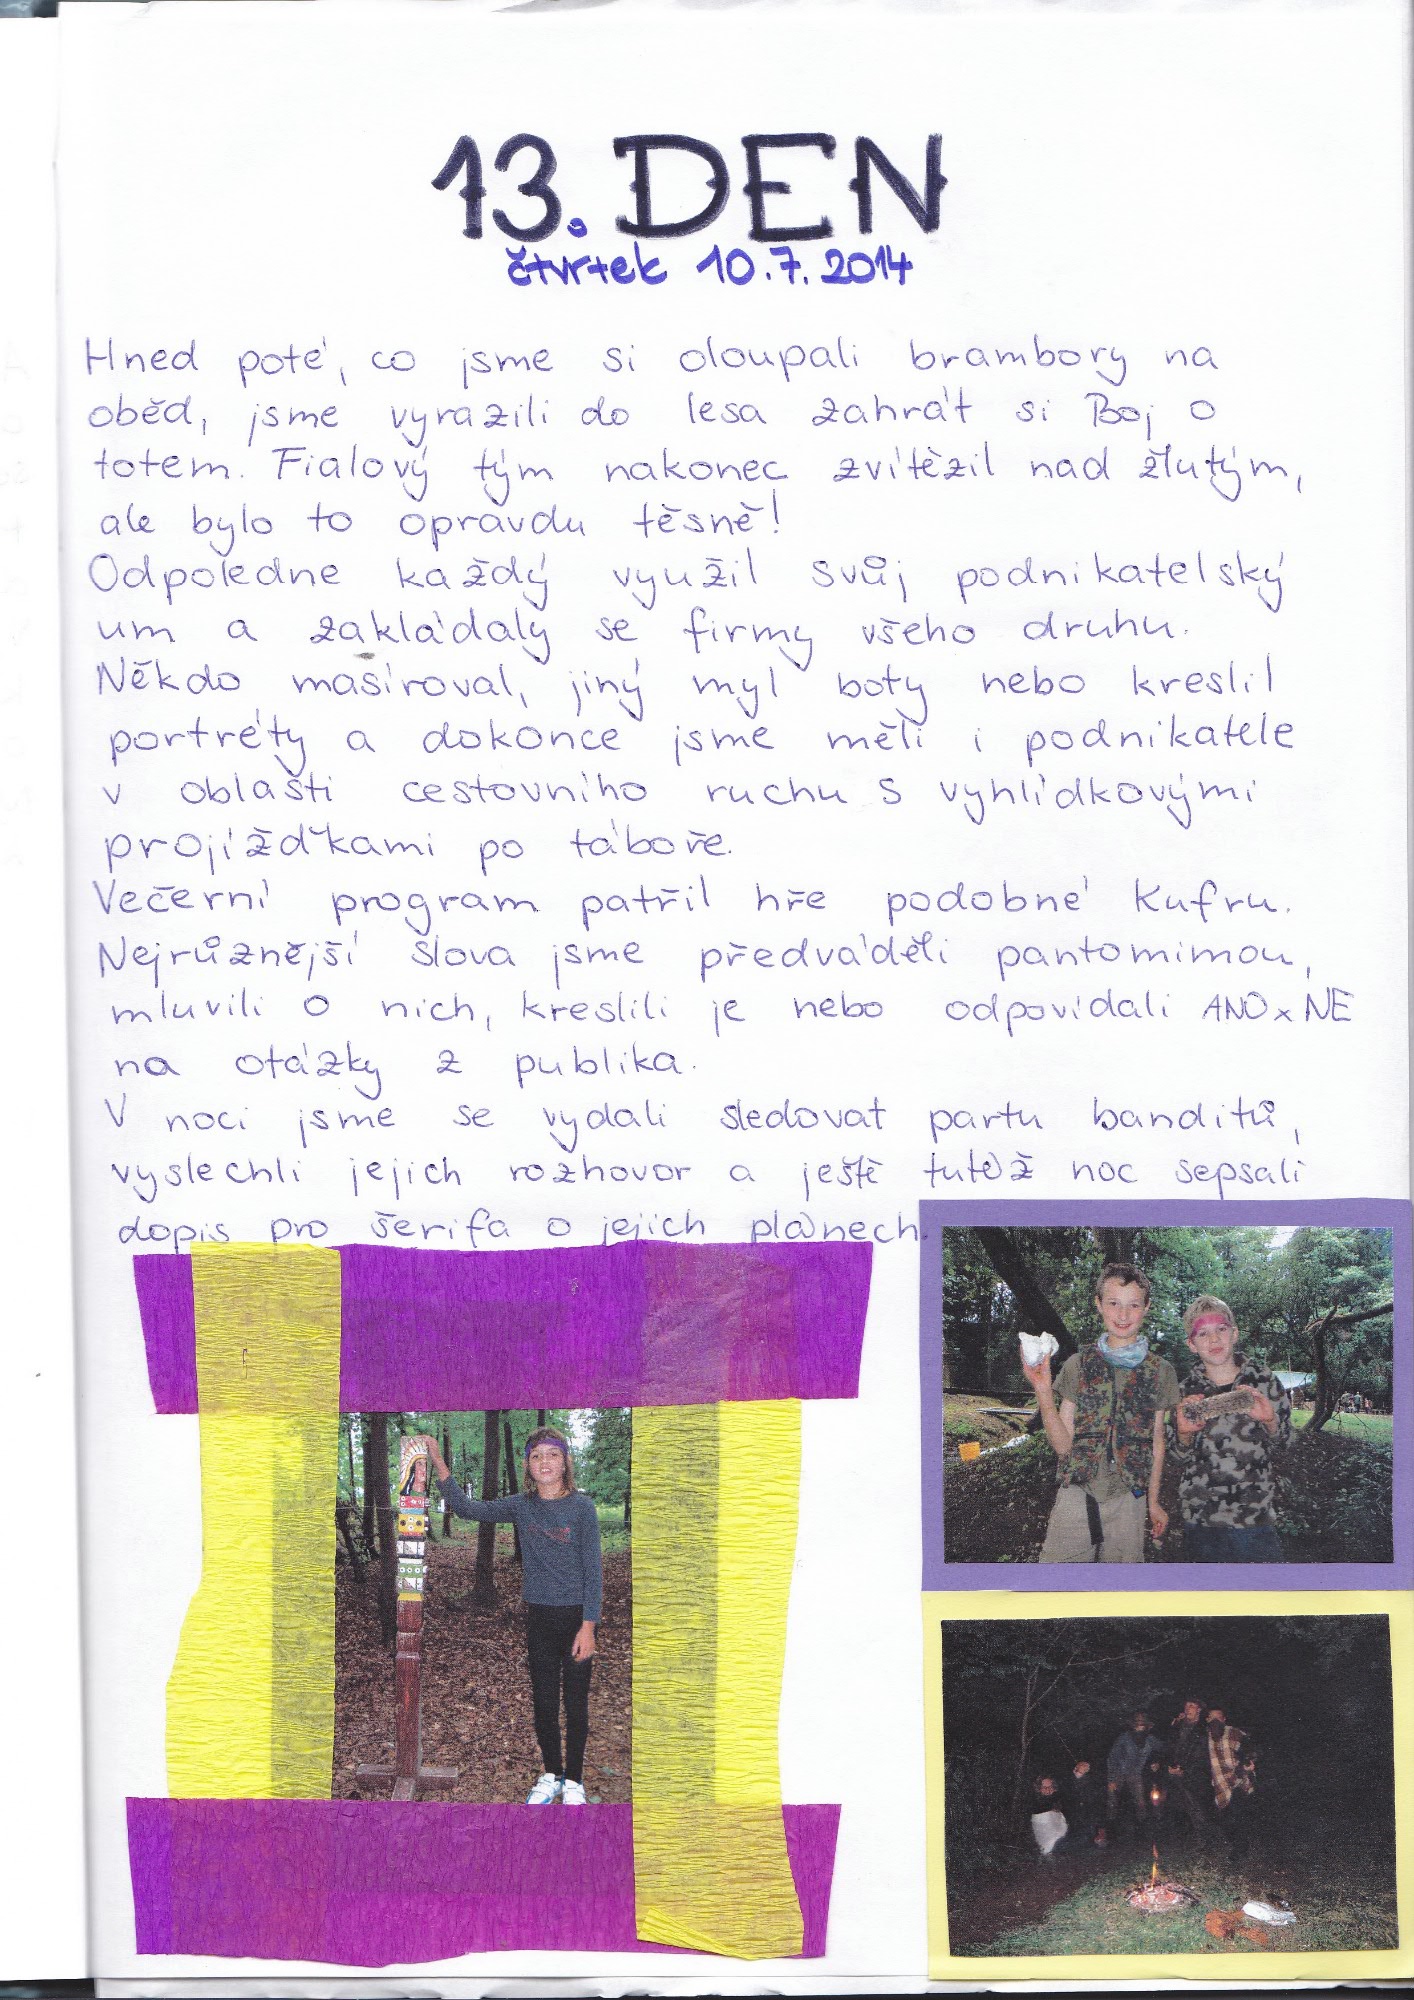 13. DEN
čtvrtek 10.7.2014
Hned poté, co jsme si oloupali brambory na
oběd, jsme vyrazili do lesa zahrát si Boj o
totem. Fialový tým nakonec zvítězil nad žlutým,
ale bylo to opravdu těsně!
Odpoledne každý využil svůj podnikatelský
um a zakládaly se firmy všeho druhu.
Někdo masíroval, jiný myl boty nebo kreslil
portréty a dokonce jsme měli i podnikatele
v oblasti cestovního ruchu s vyhlídkovými
projížďkami po táboře.
Večerní program patřil hře podobné Kufru.
Nejrůznější slova jsme předváděli pantomimou,
mluvili o nich, kreslili je nebo odpovídali ANO x NE
na otázky z publika.
V noci jsme se vydali sledovat partu banditů,
vyslechli jejich rozhovor a ještě tutéž noc sepsali
dopis pro šerifa o jejich plánech.